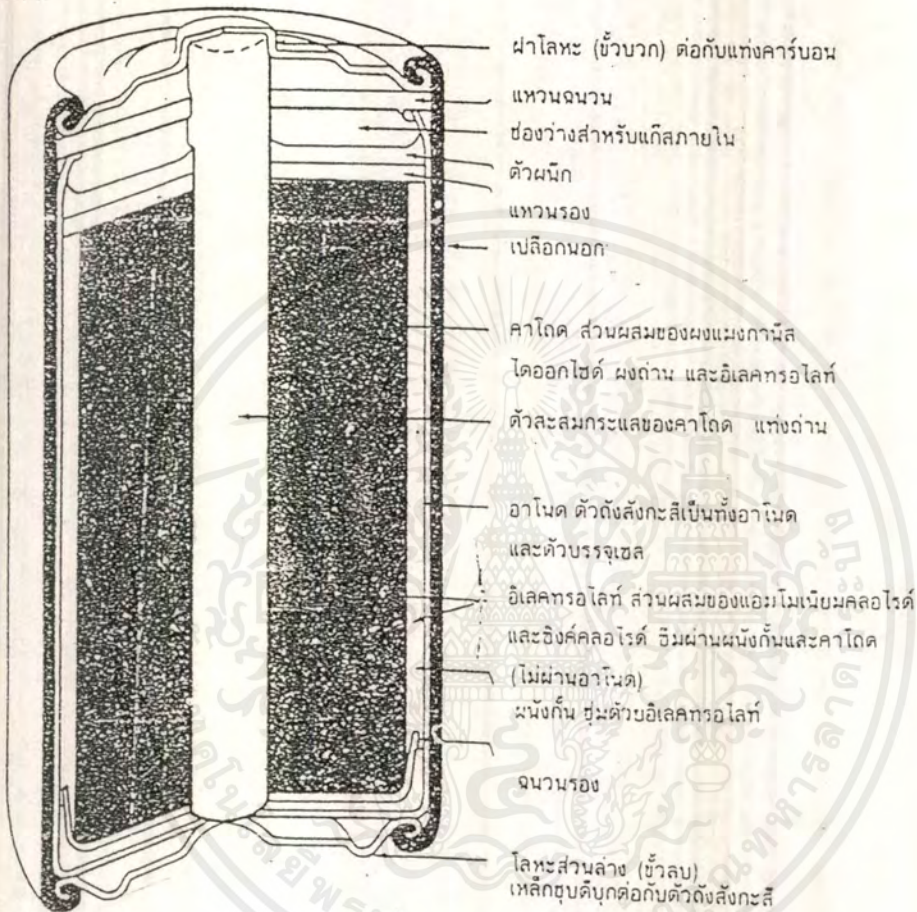 ฝาโลหะ (ขั้วบวก) ต่อกับแท่งคาร์บอน
แหวนฉนวน
ช่องว่างสำหรับแก๊สภายใน
ตัวผนึก
แหวนรอง
เปลือกนอก
คาโถด ส่วนผสมของผงแมงกานีส
ไดออกไซด์ ผงถ่าน และอิเลคทรอไลท์
ตัวสะสมกระแสของคาโถด แท่งถ่าน
อาโนด ตัวถังสังกะสีเป็นทั้งอาโนด
และตัวบรรจุเซล
อิเลคทรอไลท์ ส่วนผสมของแอมโมเนียมคลอไรด์
และซิงค์คลอไรด์ ซึมผ่านผนังกั้นและคาโถด
(ไม่ผ่านอาโนด)
ผนังกั้น ชุ่มด้วยอิเลคทรอไลท์
ฉนวนรอง
โลหะส่วนล่าง (ขั้วลบ)
เหล็กชุบดีบุกต่อกับตัวถังสังกะสี